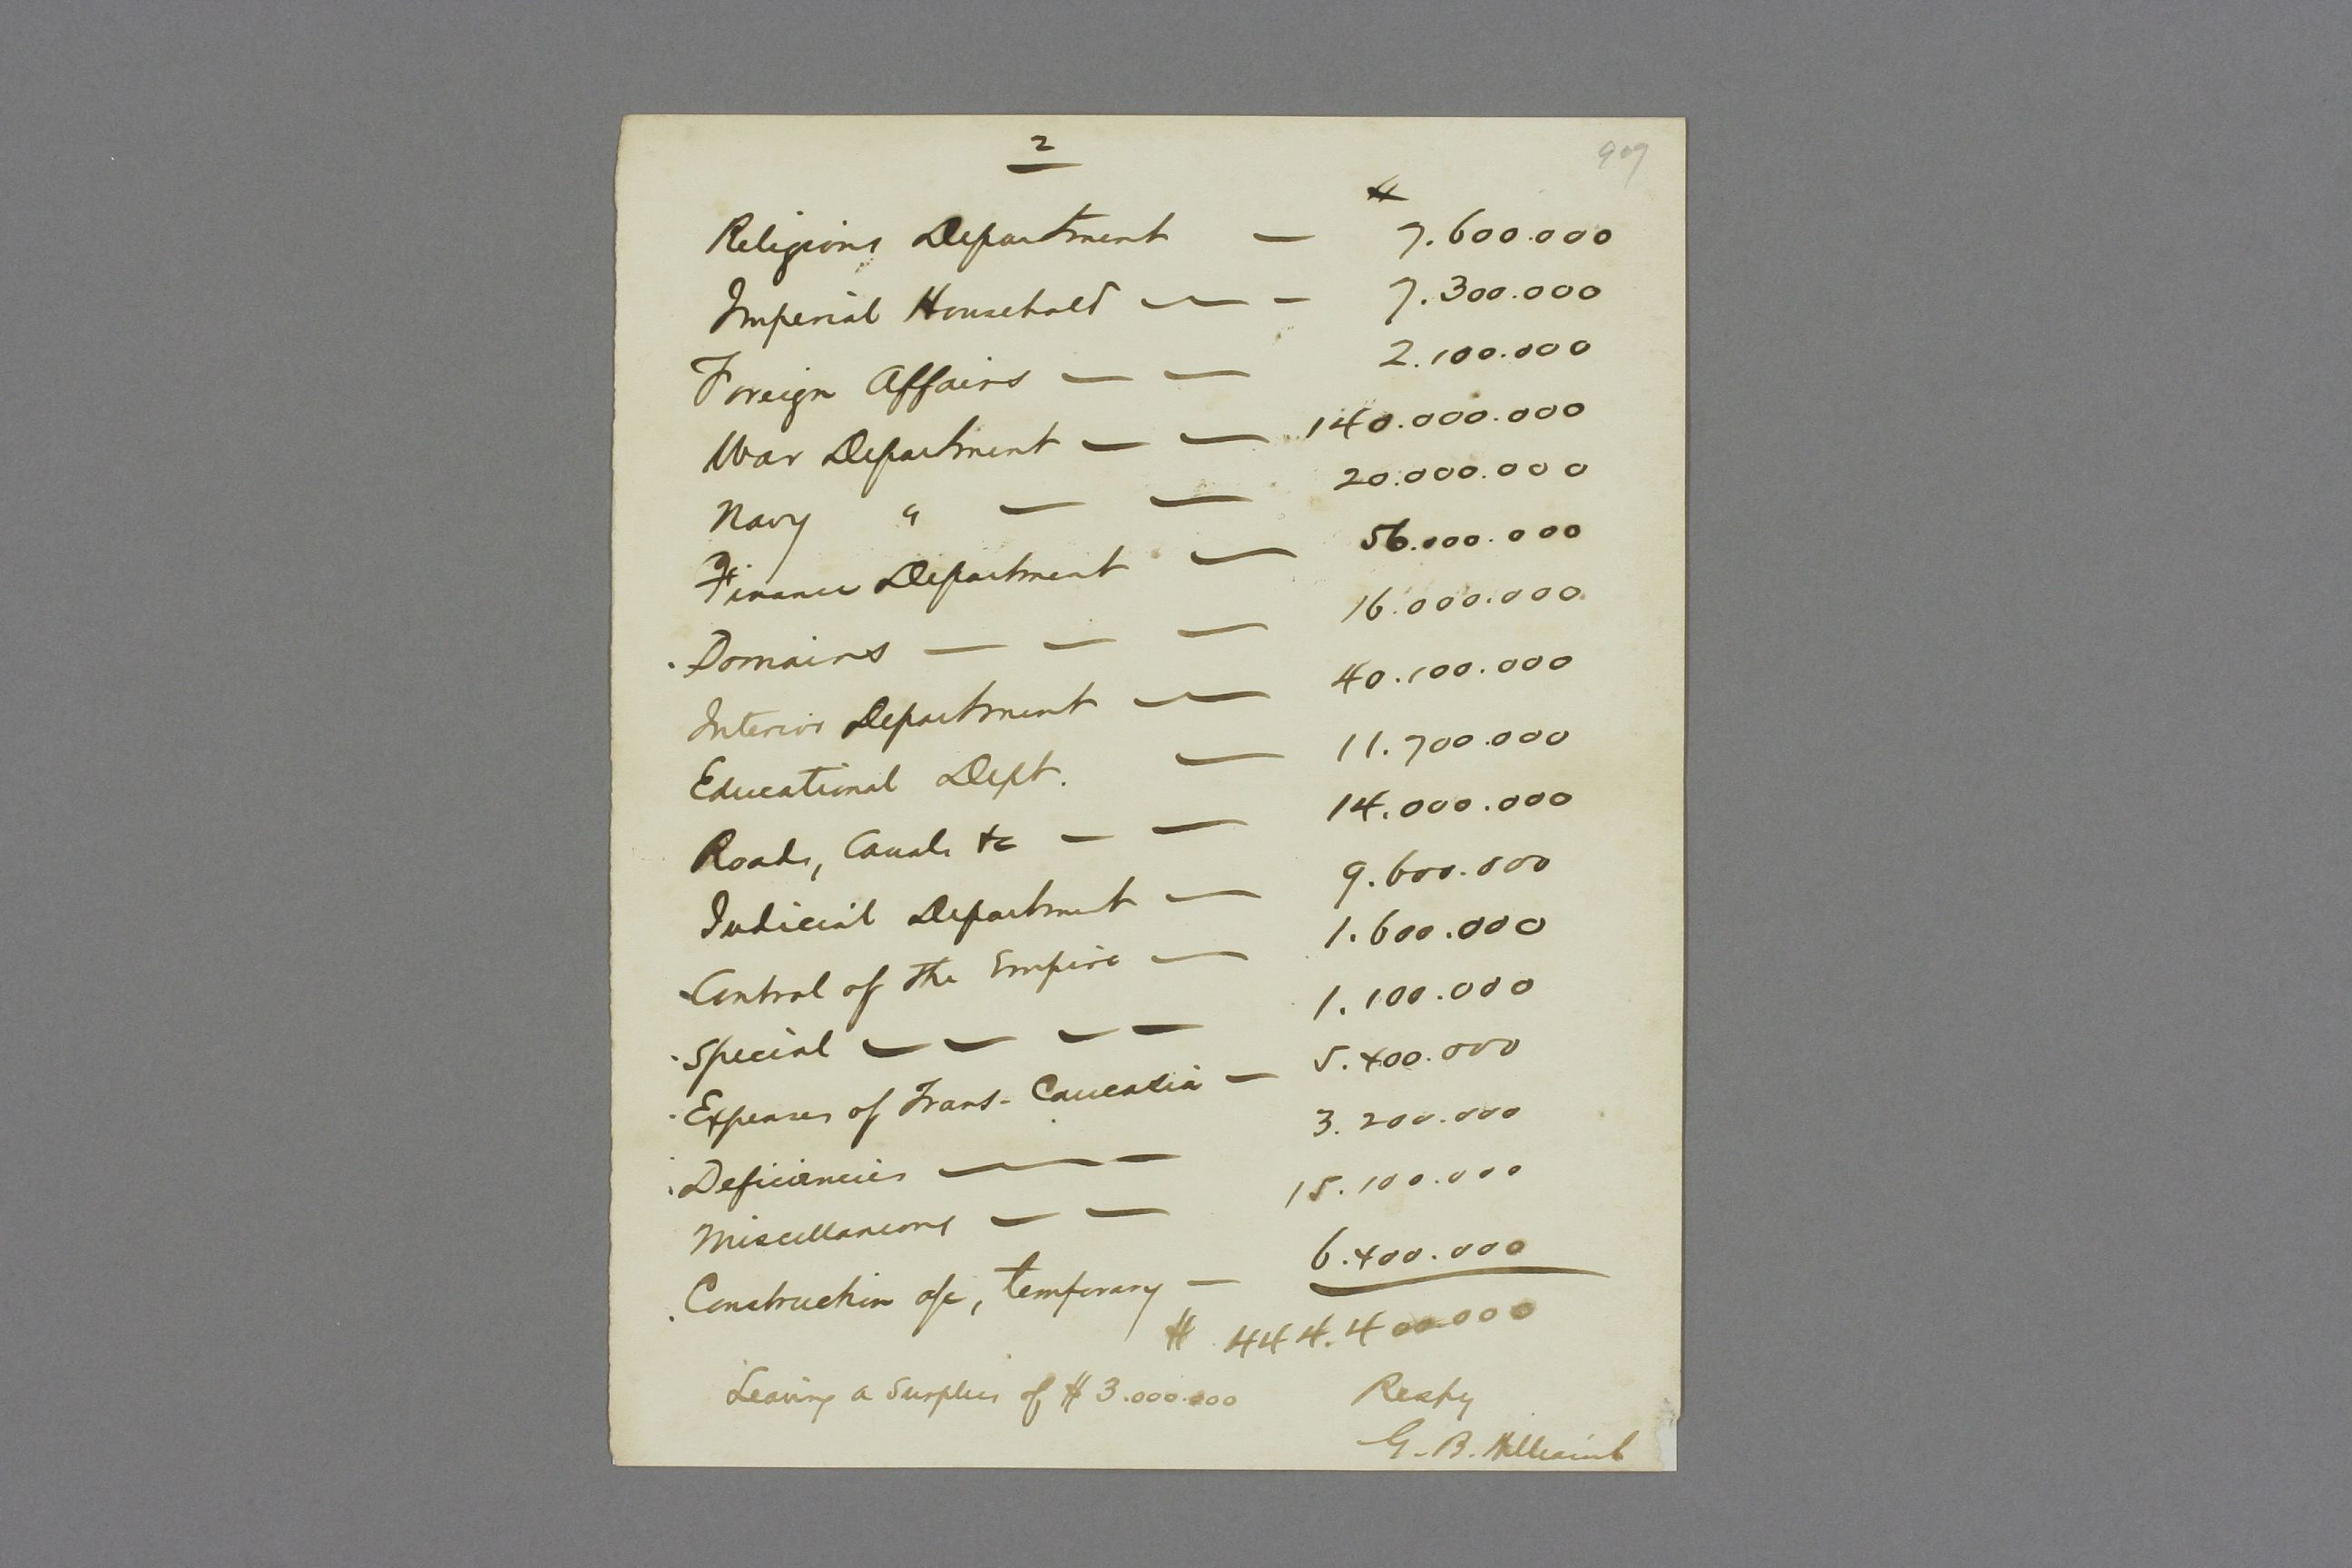 2
909
$
Religious Department — 7.600.000
Imperial Household — — 7.300.000
Foreign Affairs — — 2.100.000
War Department — — 140.000.000
Navy " — — 20.000.000
Finance Department — 56.000.000
Domains — — — 16.000.000
Interior Department — 40.100.000
Educational Dept. — 11.700.000
Roads, Canals &c — — 14.000.000
Judicial Department — 9.600.000
Control of the Empire — 1.600.000
Special — — — — 1.100.000
Expenses of Trans-Caucasia — 5.400.000
Deficiencies — — 3.200.000
Miscellaneous — — 15.100.000
Construction &c, temporary — 6.400.000
$ 444.400.000
Leaving a Surplus of $3.000.000 Respy
G. B.